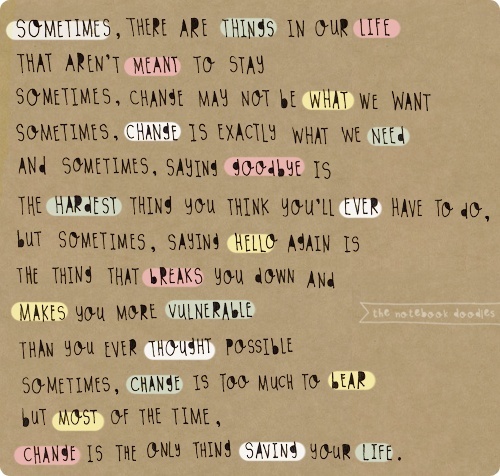 SOMETIMES, THERE ARE THINGS IN OUR LIFE
THAT AREN'T MEANT TO STAY
SOMETIMES, CHANGE MAY NOT BE WHAT WE WANT
SOMETIMES, CHANGE IS EXACTLY WHAT WE NEED
AND SOMETIMES, SAYING GOODBYE IS
THE HARDEST THING YOU THINK YOU'LL EVER HAVE TO DO,
BUT SOMETIMES, SAYING HELLO AGAIN IS
THE THING THAT BREAKS YOU DOWN AND
MAKES YOU MORE VULNERABLE
the notebook doodles
THAN YOU EVER THOUGHT POSSIBLE
SOMETIMES, CHANGE IS TOO MUCH TO BEAR
BUT MOST OF THE TIME,
CHANGE IS THE ONLY THING SAVING YOUR LIFE.